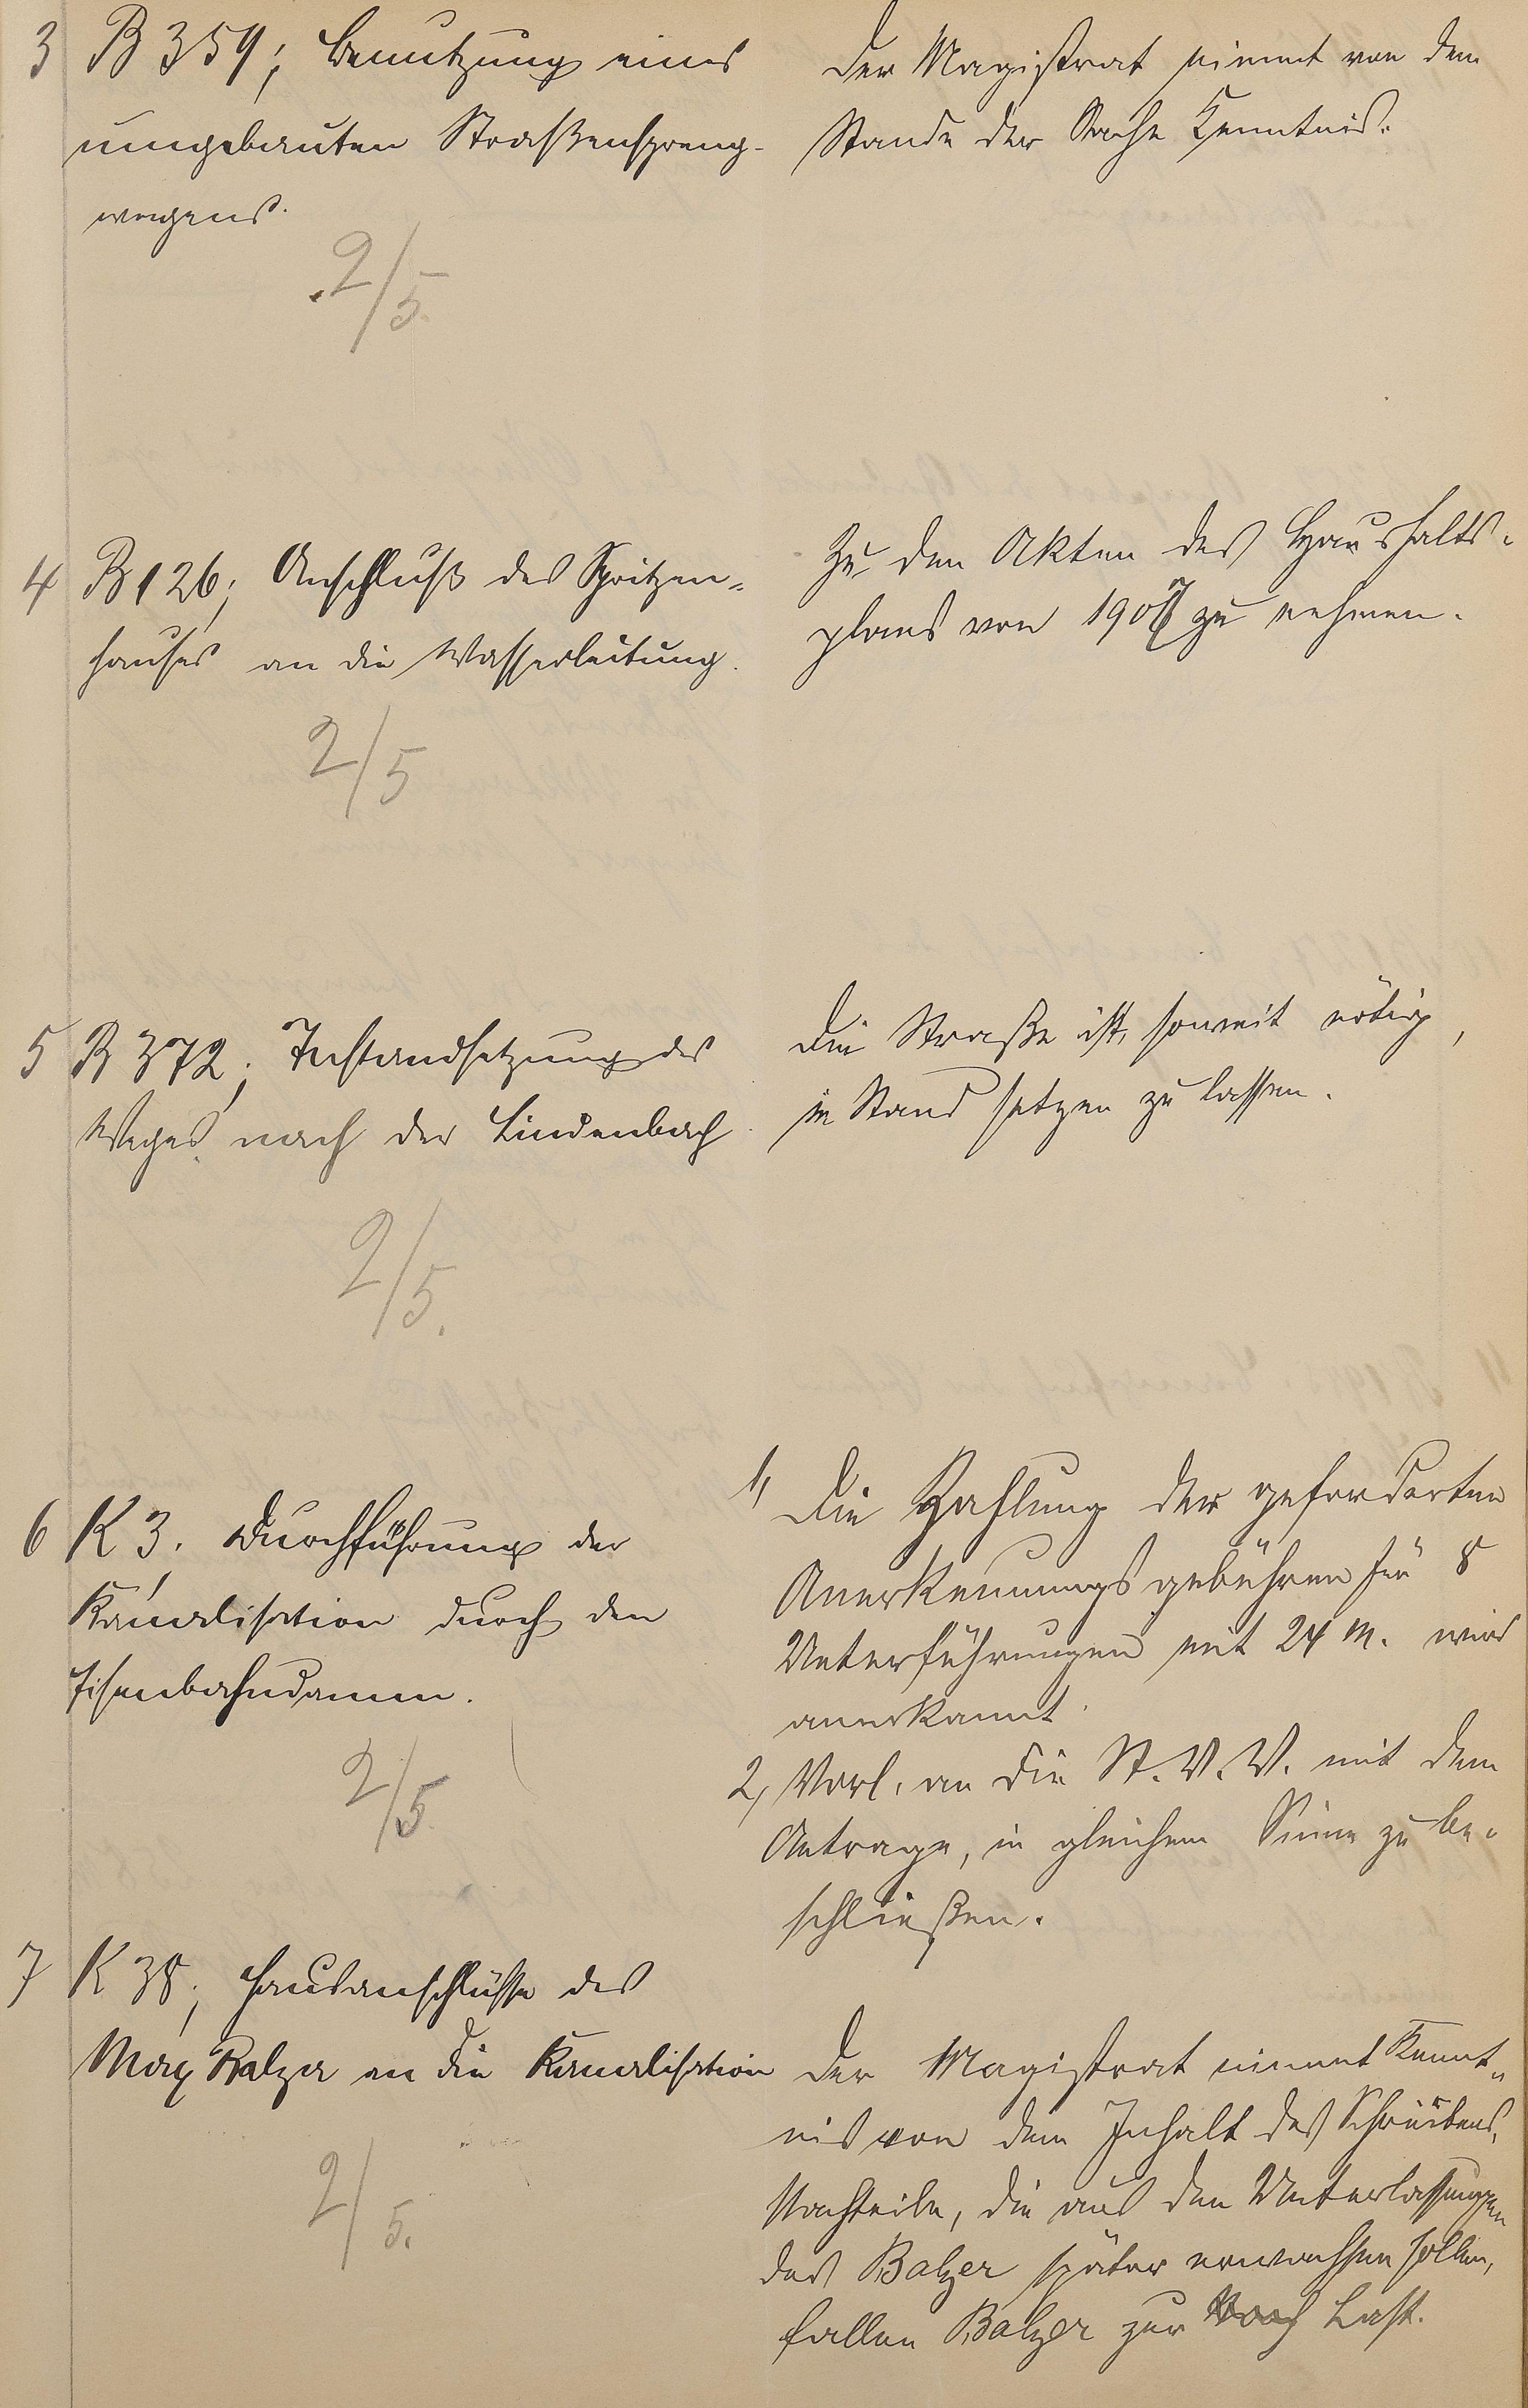 3 B 359; Benutzung eines
umgebauten Straßenspreng-
wagens.
2/5.
Der Magistrat nimmt von dem
Stande der Sache Kenntnis.
4 B 126; Anschluß des Spritzen-
hauses an die Wasserleitung.
2/5
Zu den Akten des Haushalts-
plans von 1907 zu nehmen.
5 B 372; Instandsetzung des
Weges nach der Lindenbach
2/5.
Die Straße ist, soweit nötig,
in Stand setzen zu lassen.
6 K 3. Durchführung der
Kanalisation durch den
Eisenbahndamm.
2/5.
1, Die Zahlung der geforderten
Anerkennungsgebühren für 8
Unterführungen mit 24 M. wird
anerkannt.
2, Vorl. an die St. V. V. mit dem
Antrage, in gleichem Sinne zu be-
schließen.
7 K 38; Hausanschlüsse des
Max Balzer an die Kanalisation
2/5.
Der Magistrat nimmt Kennt-
nis von dem Inhalt des Schreibens,
Nachteile, die aus den Unterlassungen
des Balzer später erwachsen sollen,
fallen Balzer zur Last.